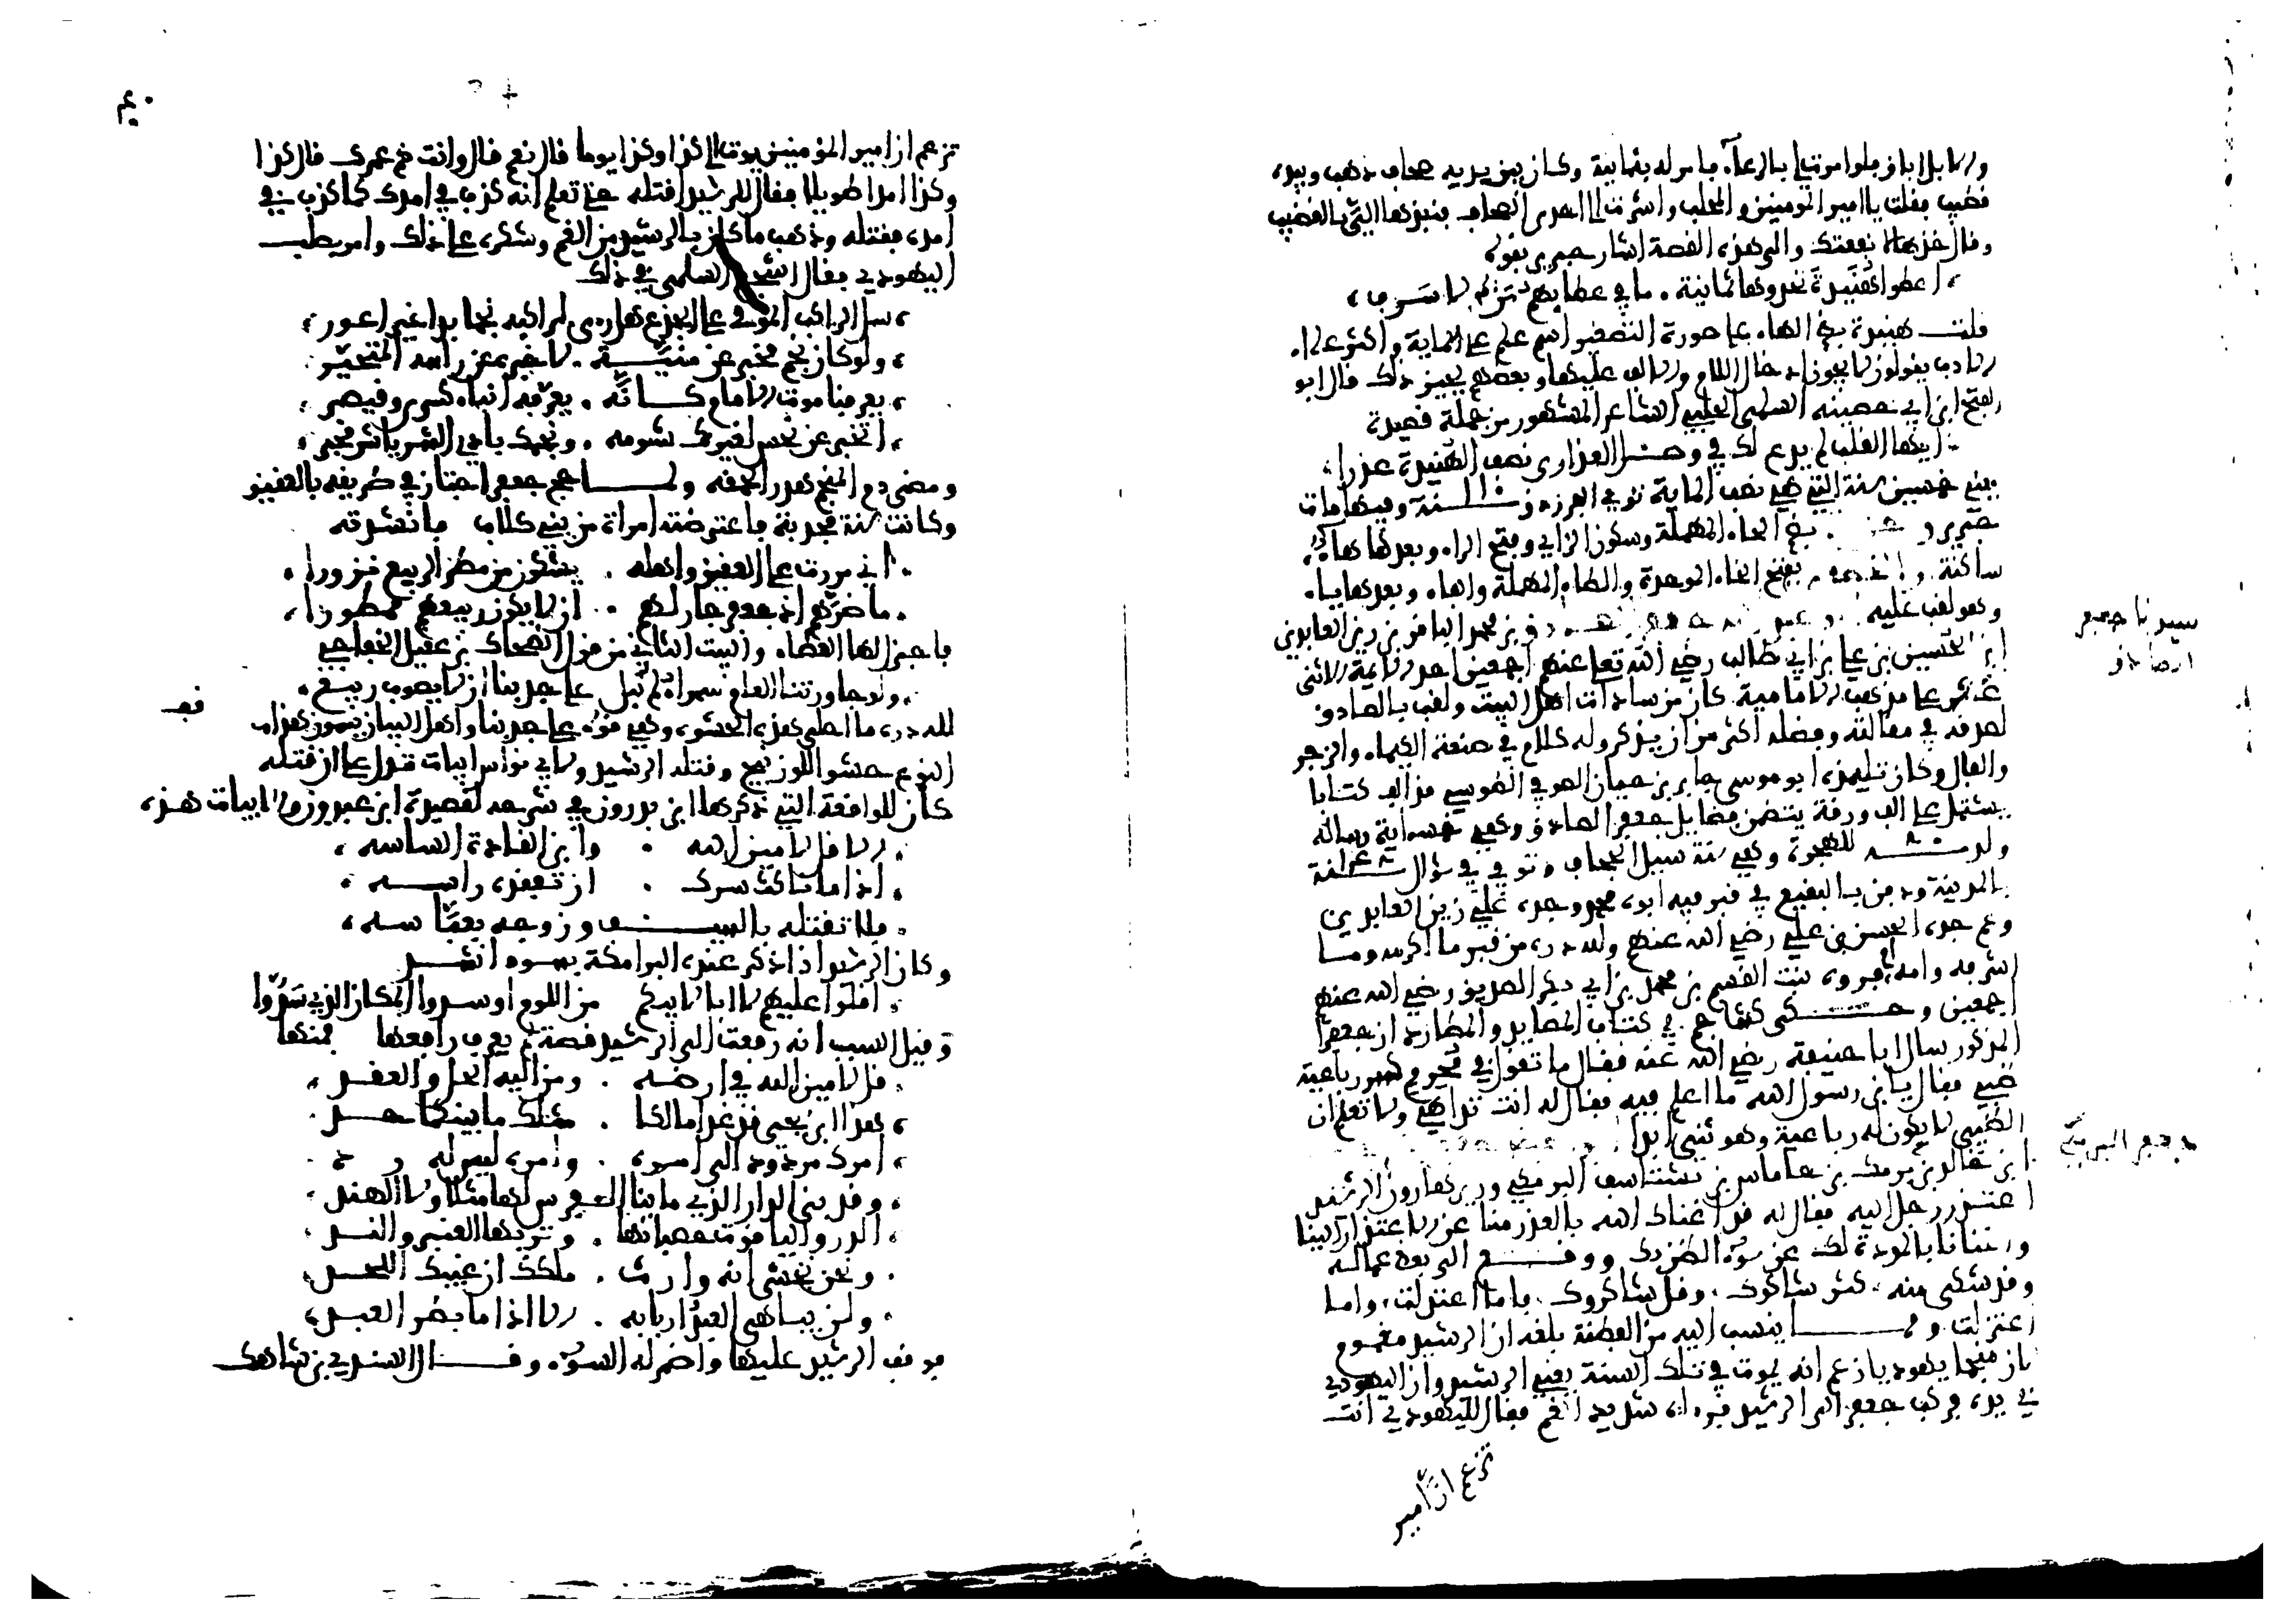 والابل اباق فلو امرت لي بالرعاء فامر له بثمانية وكان بين يديه صحاف ذهب وبيده
قضيب فقلت يا امير المومنين والمحلب واشرت الى احدى الصحاف فنبذها الي بالقضيب
وقال خذها لا نفعتك والى هذه القصة اشار جرير بقوله
اعطوا هنيدة تحدوها ثمانية . ما في عطايهم من ولا سرف
قلت هنيدة بضم الهاء على صورة التصغير اسم علم على الماية واكثر علماء
الادب يقولون لا يجوز ادخال اللام والالف عليها وبعضهم يجيز ذلك قال ابو
الفتح ابن ابي حصينة السلمي الحلبي الشاعر المشهور من جملة قصيدة
ايها القلب لم يدع لك في وصـل العذارى نصف الهنيدة عذرا
يعني خمسين سنة التي هي نصف الماية توفي الفرزدق سنة وفيها مات
جرير بضم الحاء المهملة وسكون الزاي وفتح الراء وبعدها هاء
ساكنة بفتح الخاء الموحدة والطاء المهملة والفاء وبعدها ياء
وهو لقب عليه جعفر بن محمد الباقر بن زين العابدين
ابن الحسين بن علي بن ابي طالب رضي الله تعلى عنهم اجمعين احد الايمة الاثني
عشر على مذهب الامامية كان من سادات اهل البيت ولقب بالصادق
لصدقه في مقالته وفضله اكثر من ان يذكر وله كلام في صنعة الكيمياء والزجر
والفال وكان تلميذه ابو موسى جابر بن حيان الصوفي الطوسي قد الف كتابا
يشتمل على الف ورقة يتضمن رسايل جعفر الصادق وهي خمسماية رسالة
ولد سنة للهجرة وهي سنة سيل الجحاف وتوفي في شوال سنة
بالمدينة ودفن بالبقيع في قبر فيه ابوه محمد وجده علي زين العابدين
وعم جده الحسن بن علي رضي الله عنهم ولله دره من قبر ما اكرمه وما
اشرفه وامه ام فروة بنت القسم بن محمد بن ابي بكر الصديق رضي الله عنهم
اجمعين وحكى كشاجم في كتاب المصايد والمطارد ان جعفرا
المذكور سال ابا حنيفة رضي الله عنه فقال ما تقول في محرم كسر رباعية
ظبي فقال يا بن رسول الله ما اعلم فيه فقال له انت تداهي ولا تعلم ان
الظبي لا يكون له رباعية وهو ثني ابدا
ابن خالد بن برمك بن جاماس بن يشتاسف البرمكي وزير هارون الرشيد
اعتذر رجل اليه فقال له قد اغناك الله بالعذر منا عن الاعتذار الينا
واغنانا بالمودة لك عن سوء الظن بك ووقع الى بعض عماله
وقد شكي منه . كثر شاكوك . وقل شاكروك . فاما اعتدلت . واما
اعتزلت ومما ينسب اليه من الفطنة بلغه ان الرشيد مغموم
لان منجما يهوديا زعم انه يموت في تلك السنة يعني الرشيد وان اليهودي
في يده فركب جعفر الى الرشيد فراه شديد الغم فقال لليهودي انت
سيدنا جعفر
الصادق
جعفر البرمكي
تزعم ان امير
تزعم ان امير المؤمنين يموت الى كذا وكذا يوما قال نعم قال وانت كم عمرك قال كذا
وكذا امدا طويلا فقال للرشيد اقتله حتى تعلم انه كذب في امدك كما كذب في
امده فقتله وذهب ما كان بالرشيد من الغم وشكره على ذلك وامر بصلب
اليهودي فقال اشجع السلمي في ذلك
سل الراكب الموفي على الجذع هل راى لراكبه نجما بدا غير اعور
ولو كان نجم مخبر عن منية . لاخبره عن راسه المتحير
يعرفنا موت الامام كانه . يعرفه انباء كسرى وقيصر
اتخبر عن نحس لغيرك شومه . ونجمك بادي الشر يا شر مخبر
ومضى دم المنجم هدرا لحمقه ولما حج جعفر اجتاز في طريقه بالعقيق
وكانت سنة مجدبة فاعترضته امراة من بني كلاب فانشدته
اني مررت على العقيق واهله . يشكون من مطر الربيع نزورا
ما ضرهم اذ جعفر جار لهم . ان لا يكون ربيعهم ممطورا
فاجزل لها العطاء والبيت الثاني من قول الضحاك بن عقيل الخفاجي
ولو جاورتنا العام سمراء لم نبل على جدبنا ان لا يصوب ربيع
لله دره ما احلى هذه الحشوه وهي قوله على جدبنا واهل البيان يسمون هذا
النوع حشو اللوزينج وقتله الرشيد ولابي نواس ابيات تدل على ان قتله
كان للواقعة التي ذكرها ابن بدرون في شرحه لقصيدة ابن عبدون والابيات هذه
الا قل لامين الله . وابن القادة الساسه
اذا ما ناكث سرك . ان تفقده راسه
فلا تقتله بالسيف وزوجه بعباسه
وكان الرشيد اذا ذكر عنده البرامكة بسوء انشد
اقلوا عليهم لا ابا لابيكم من اللوم او سدوا المكان الذي سدوا
وقيل السبب انه رفعت الى الرشيد قصة لم يعرف رافعها فمنها
قل لامين الله في ارضه . ومن اليه الحل والعقد
هذا ابن يحيى قد غدا مالكا . مثلك ما بينكما حد
امرك مردود الى امره . وامره ليس له رد
وقد بنى الدار الذي ما بنا الفرس لها مثلا ولا الهند
الدر والياقوت حصباؤها . وتربها العنبر والند
ونحن نخشى انه وارث . ملكك ان غيبك اللحد
ولن يباهي العبد اربابه . الا اذا ما بطر العبد
فوقف الرشيد عليها واضمر له السوء وقال السندي بن شاهك